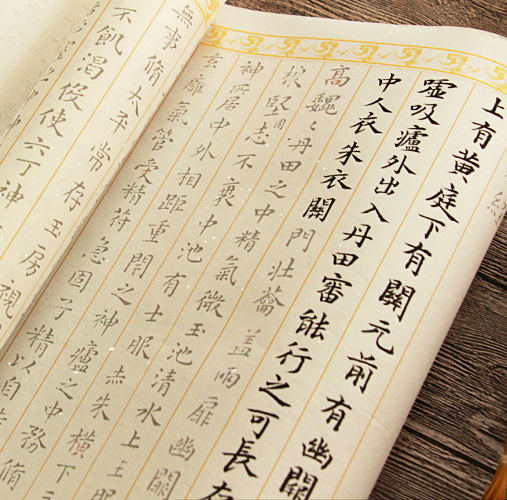 上有黃庭下有關元前有幽闕
噓吸廬外出入丹田審能行之可長存
中人衣朱衣關門壯籥蓋兩扉幽闕
高巍〻丹田之中精氣微玉池清水上生肥
根堅固志不衰中池有士服赤朱橫下三
神所居中外相距重閇之神廬之中務脩
玄膺氣管受精符急固子精以自持
無事脩太平常存玉房視
不飢渴假使六丁神